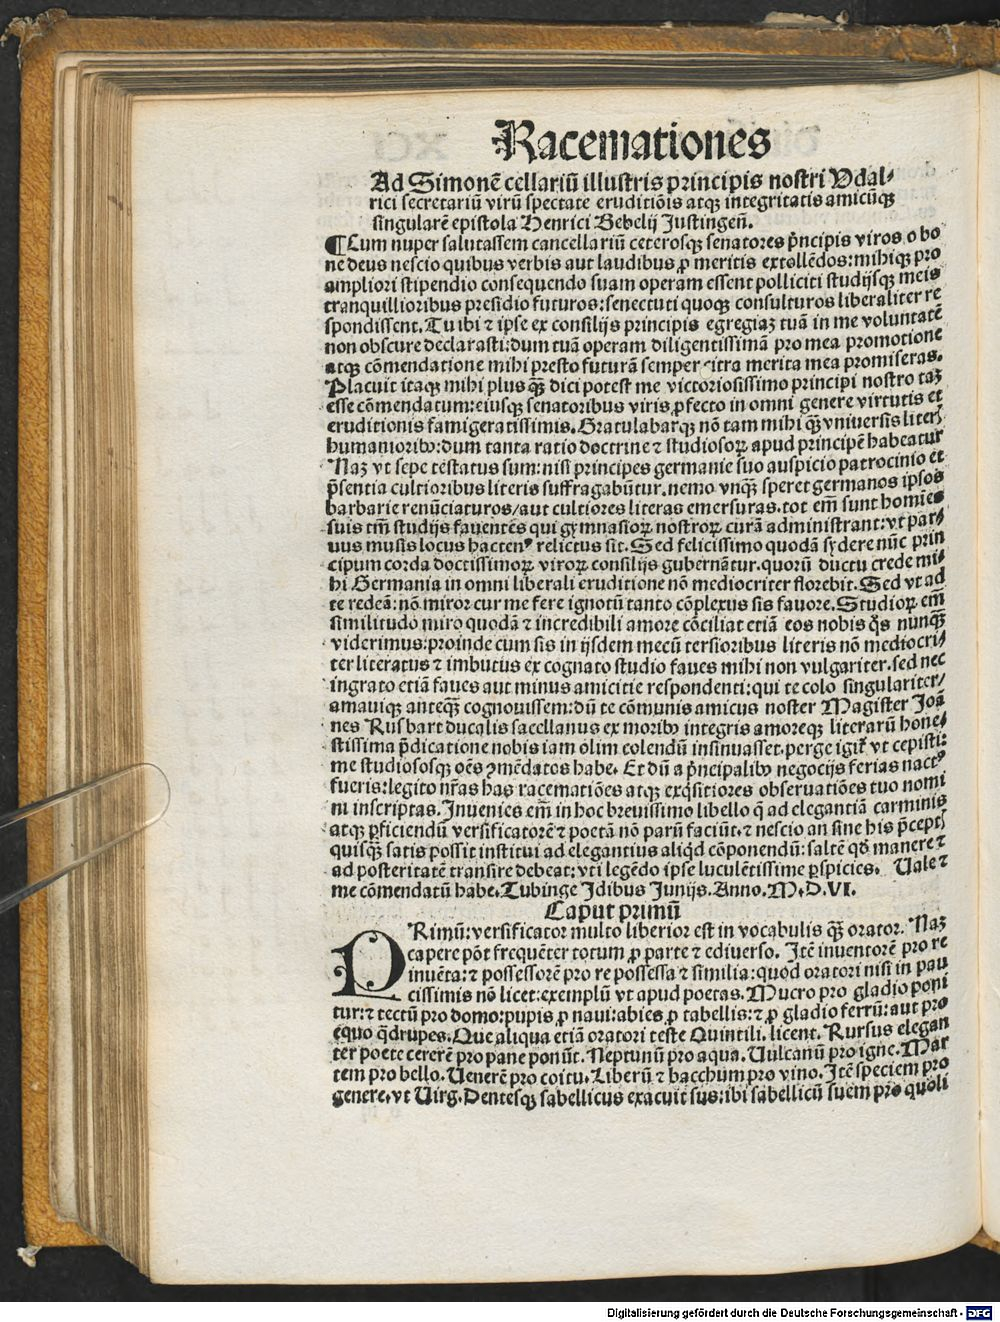 Racemationes
Ad Simonē cellariū illustris principis nostri Vdal-
rici secretariū virū spectate eruditiōis atqꝫ integritatis amicūqꝫ
singularē epistola Henrici Bebelij Justingeñ.
¶Cum nuper salutassem cancellariū ceterosqꝫ senatores p̄ncipis viros o bo
ne deus nescio quibus verbis aut laudibus ꝓ meritis extollēdos: mihiqꝫ pro
ampliori stipendio consequendo suam operam essent polliciti studijsqꝫ meis
tranquillioribus presidio futuros: senectuti quoqꝫ consulturos liberaliter re
spondissent. Tu ibi ⁊ ipse ex consilijs principis egregiaꝫ tuā in me voluntatē
non obscure declarasti: dum tuā operam diligentissimā pro mea promotione
atqꝫ cōmendatione mihi presto futurā semper citra merita mea promiseras.
Placuit itaqꝫ mihi plus qꝫ̄ dici potest me victoriosissimo principi nostro taꝫ
esse cōmendatum: eiusqꝫ senatoribus viris ꝓfecto in omni genere virtutis et
eruditionis famigeratissimis. Gratulabarqꝫ nō tam mihi qꝫ̄ vniuersis liter⸗
humanioribꝰ: dum tanta ratio doctrine ⁊ studiosoꝝ apud principē habeatur
Naꝫ vt sepe testatus sum: nisi principes germanie suo auspicio patrocinio et
p̄sentia cultioribus literis suffragabūtur. nemo vnqꝫ̄ speret germanos ipsos
barbarie renūciaturos/ aut cultiores literas emersuras. tot em̄ sunt homīes
suis tm̄ studijs fauentes qui gymnasioꝝ nostroꝝ curā administrant: vt par⸗
uus musis locus hactenꝰ relictus sit. Sed felicissimo quodā sydere nūc prin
cipum corda doctissimoꝝ viroꝝ consilijs gubernātur. quorū ductu crede mi⸗
hi Germania in omni liberali eruditione nō mediocriter florebit. Sed vt ad
te redeā: nō miror cur me fere ignotū tanto cōplexus sis fauore. Studioꝝ em̄
similitudo miro quodā ⁊ incredibili amore cōciliat etiā eos nobis q̄s nunqꝫ̄
viderimus: proinde cum sis in ijsdem mecū tersioribus literis nō mediocri⸗
ter literatus ⁊ imbutus ex cognato studio faues mihi non vulgariter. sed nec
ingrato etiā faues aut minus amicitie respondenti: qui te colo singulariter/
amauiqꝫ anteqꝫ̄ cognouissem: dū te cōmunis amicus noster Magister Joā
nes Rusbart ducalis sacellanus ex moribꝰ integris amoreqꝫ literarū hone⸗
stissima p̄dicatione nobis iam olim colendū insinuasset. perge igiť vt cepisti:
me studiososqꝫ oēs ꝯmēdatos habe. Et dū a p̄ncipalibꝰ negocijs ferias nactꝰ
fueris: legito nr̄as has racematiōes atqꝫ exq̄sitiores obseruatiōes tuo nomi
ni inscriptas. Inuenies em̄ in hoc breuissimo libello q̄ ad elegantiā carminis
atqꝫ ꝑficiendū versificatorē ⁊ poetā nō parū faciūt. ⁊ nescio an sine his p̄cept⸗
quisqꝫ̄ satis possit institui ad elegantius aliq̄d cōponendū: saltē qđ manere ⁊
ad posteritatē transire debeat: vti legēdo ipse luculētissime ꝑspicies. Uale ⁊
me cōmendatū habe. Tubinge Idibus Junijs. Anno. M. D. VI.
Caput primū
PRimū: versificator multo liberior est in vocabulis qꝫ̄ orator. Naꝫ
capere pōt frequēter totum ꝓ parte ⁊ ediuerso. Itē inuentorē pro re
inuēta: ⁊ possessorē pro re possessa ⁊ similia: quod oratori nisi in pau
cissimis nō licet: exemplū vt apud poetas. Mucro pro gladio poni
tur: ⁊ tectū pro domo: pupis ꝓ naui: abies ꝓ tabellis: ⁊ ꝓ gladio ferrū: aut pro
equo q̄drupes. Que aliqua etiā oratori teste Quintili. licent. Rursus elegan
ter poete cererē pro pane ponūt. Neptunū pro aqua. Uulcanū pro igne. Mar
tem pro bello. Uenerē pro coitu. Liberū ⁊ bacchum pro vino. Itē speciem pro
genere. vt Uirg. Dentesqꝫ sabellicus exacuit sus: ibi sabellicū suem pro quoli
Digitalisierung gefördert durch die Deutsche Forschungsgemeinschaft - DFG